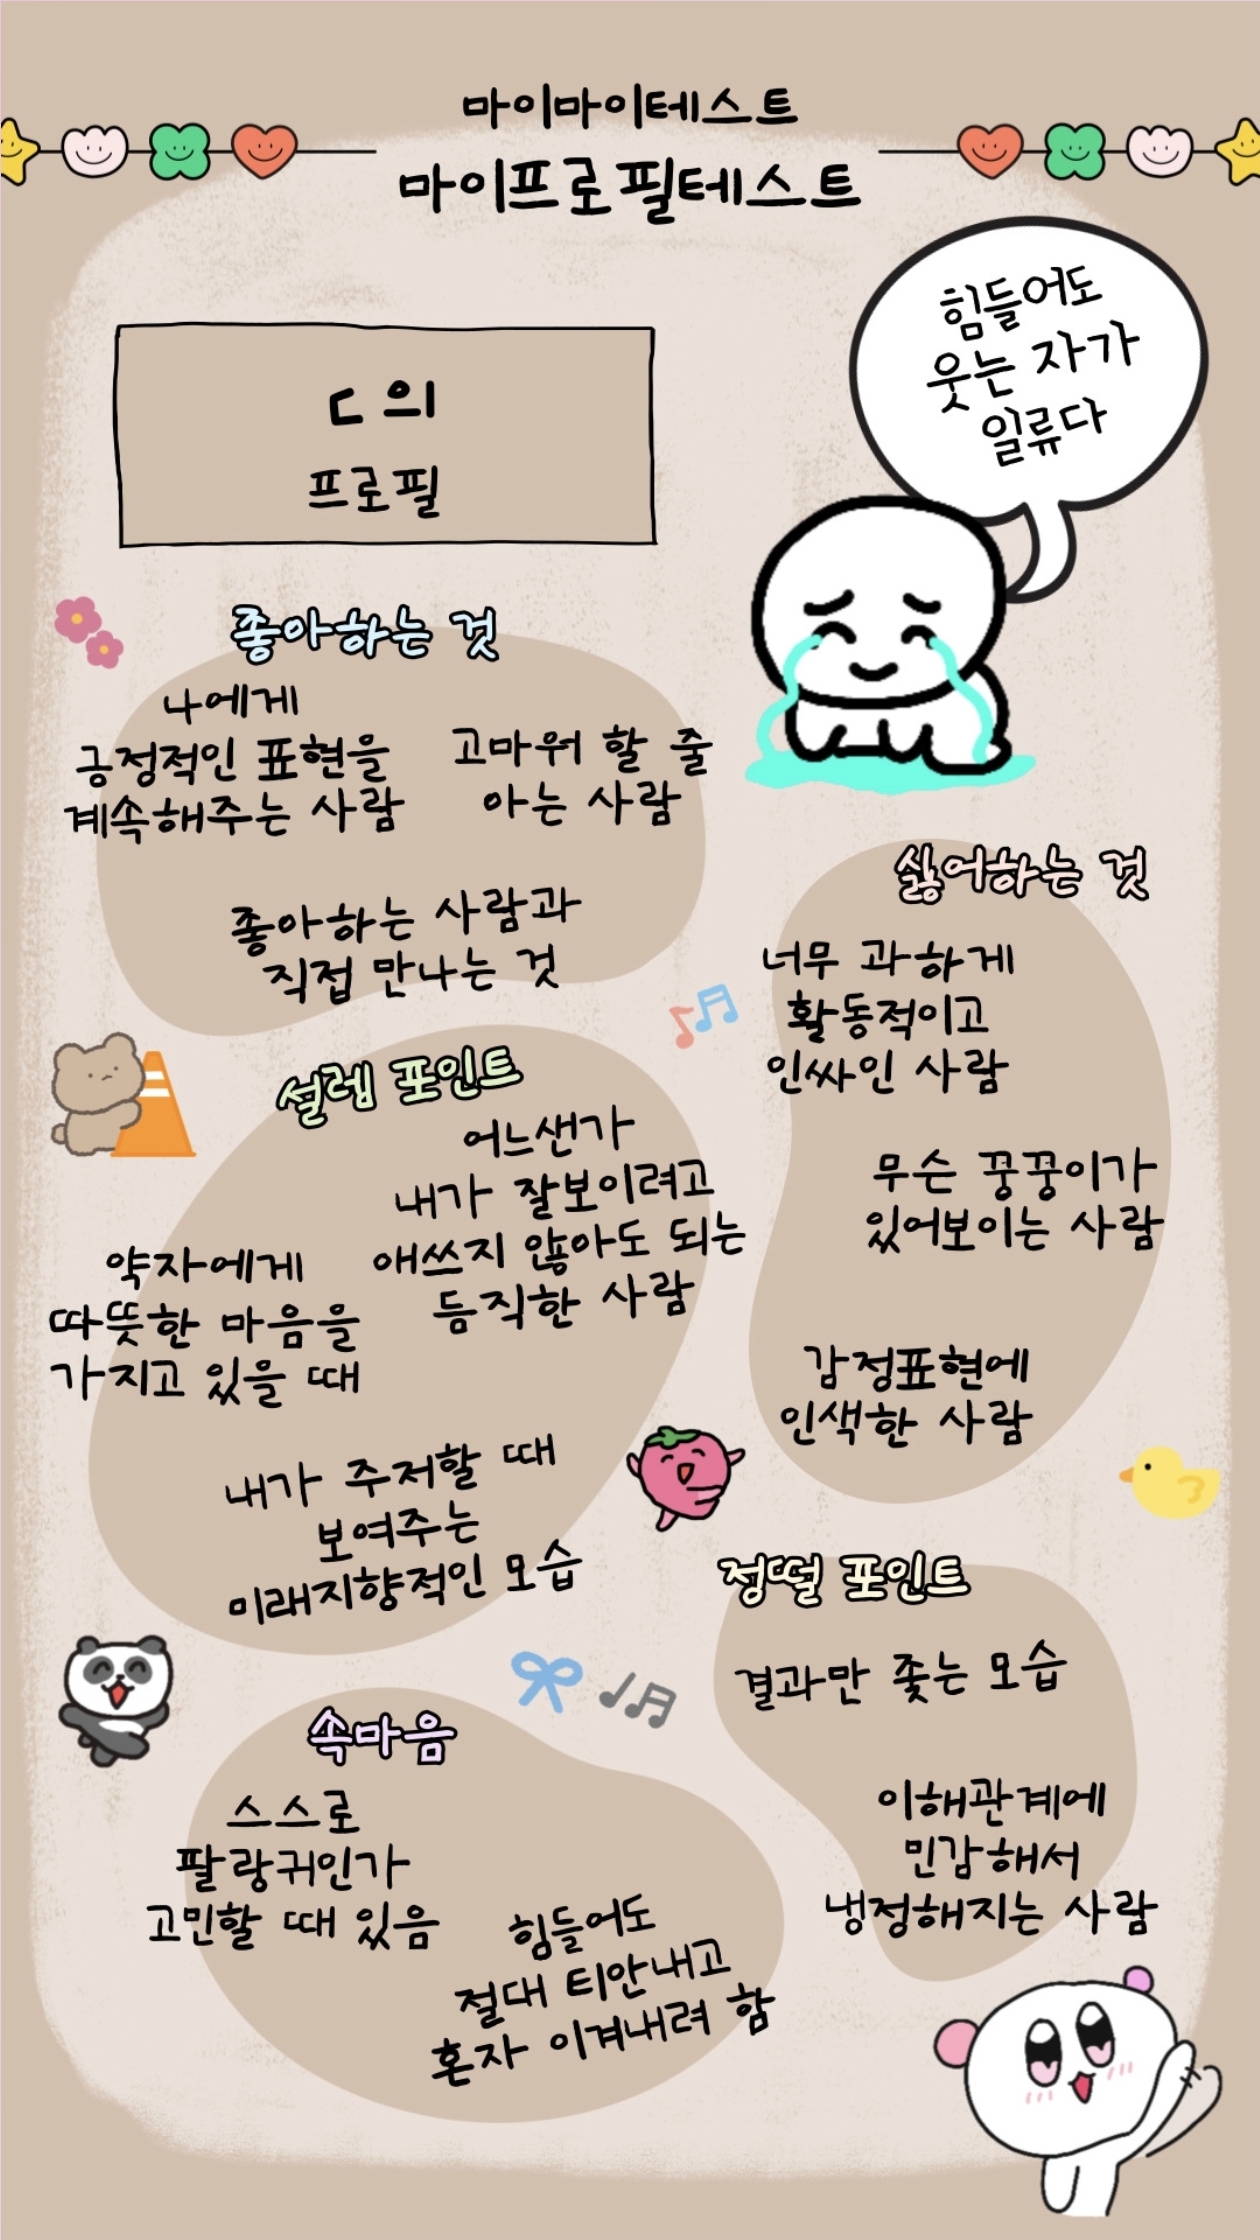 마이마이테스트
마이프로필테스트
힘들어도
웃는 자가
일류다
ㄷ의
프로필
좋아하는 것
나에게
긍정적인 표현을
계속해주는 사람
고마워 할 줄
아는 사람
좋아하는 사람과
직접 만나는 것
싫어하는 것
너무 과하게
활동적이고
인싸인 사람
무슨 꿍꿍이가
있어보이는 사람
감정표현에
인색한 사람
설렘 포인트
어느샌가
내가 잘보이려고
애쓰지 않아도 되는
듬직한 사람
약자에게
따뜻한 마음을
가지고 있을 때
내가 주저할 때
보여주는
미래지향적인 모습
정떨 포인트
결과만 좇는 모습
이해관계에
민감해서
냉정해지는 사람
속마음
스스로
팔랑귀인가
고민할 때 있음
힘들어도
절대 티안내고
혼자 이겨내려 함